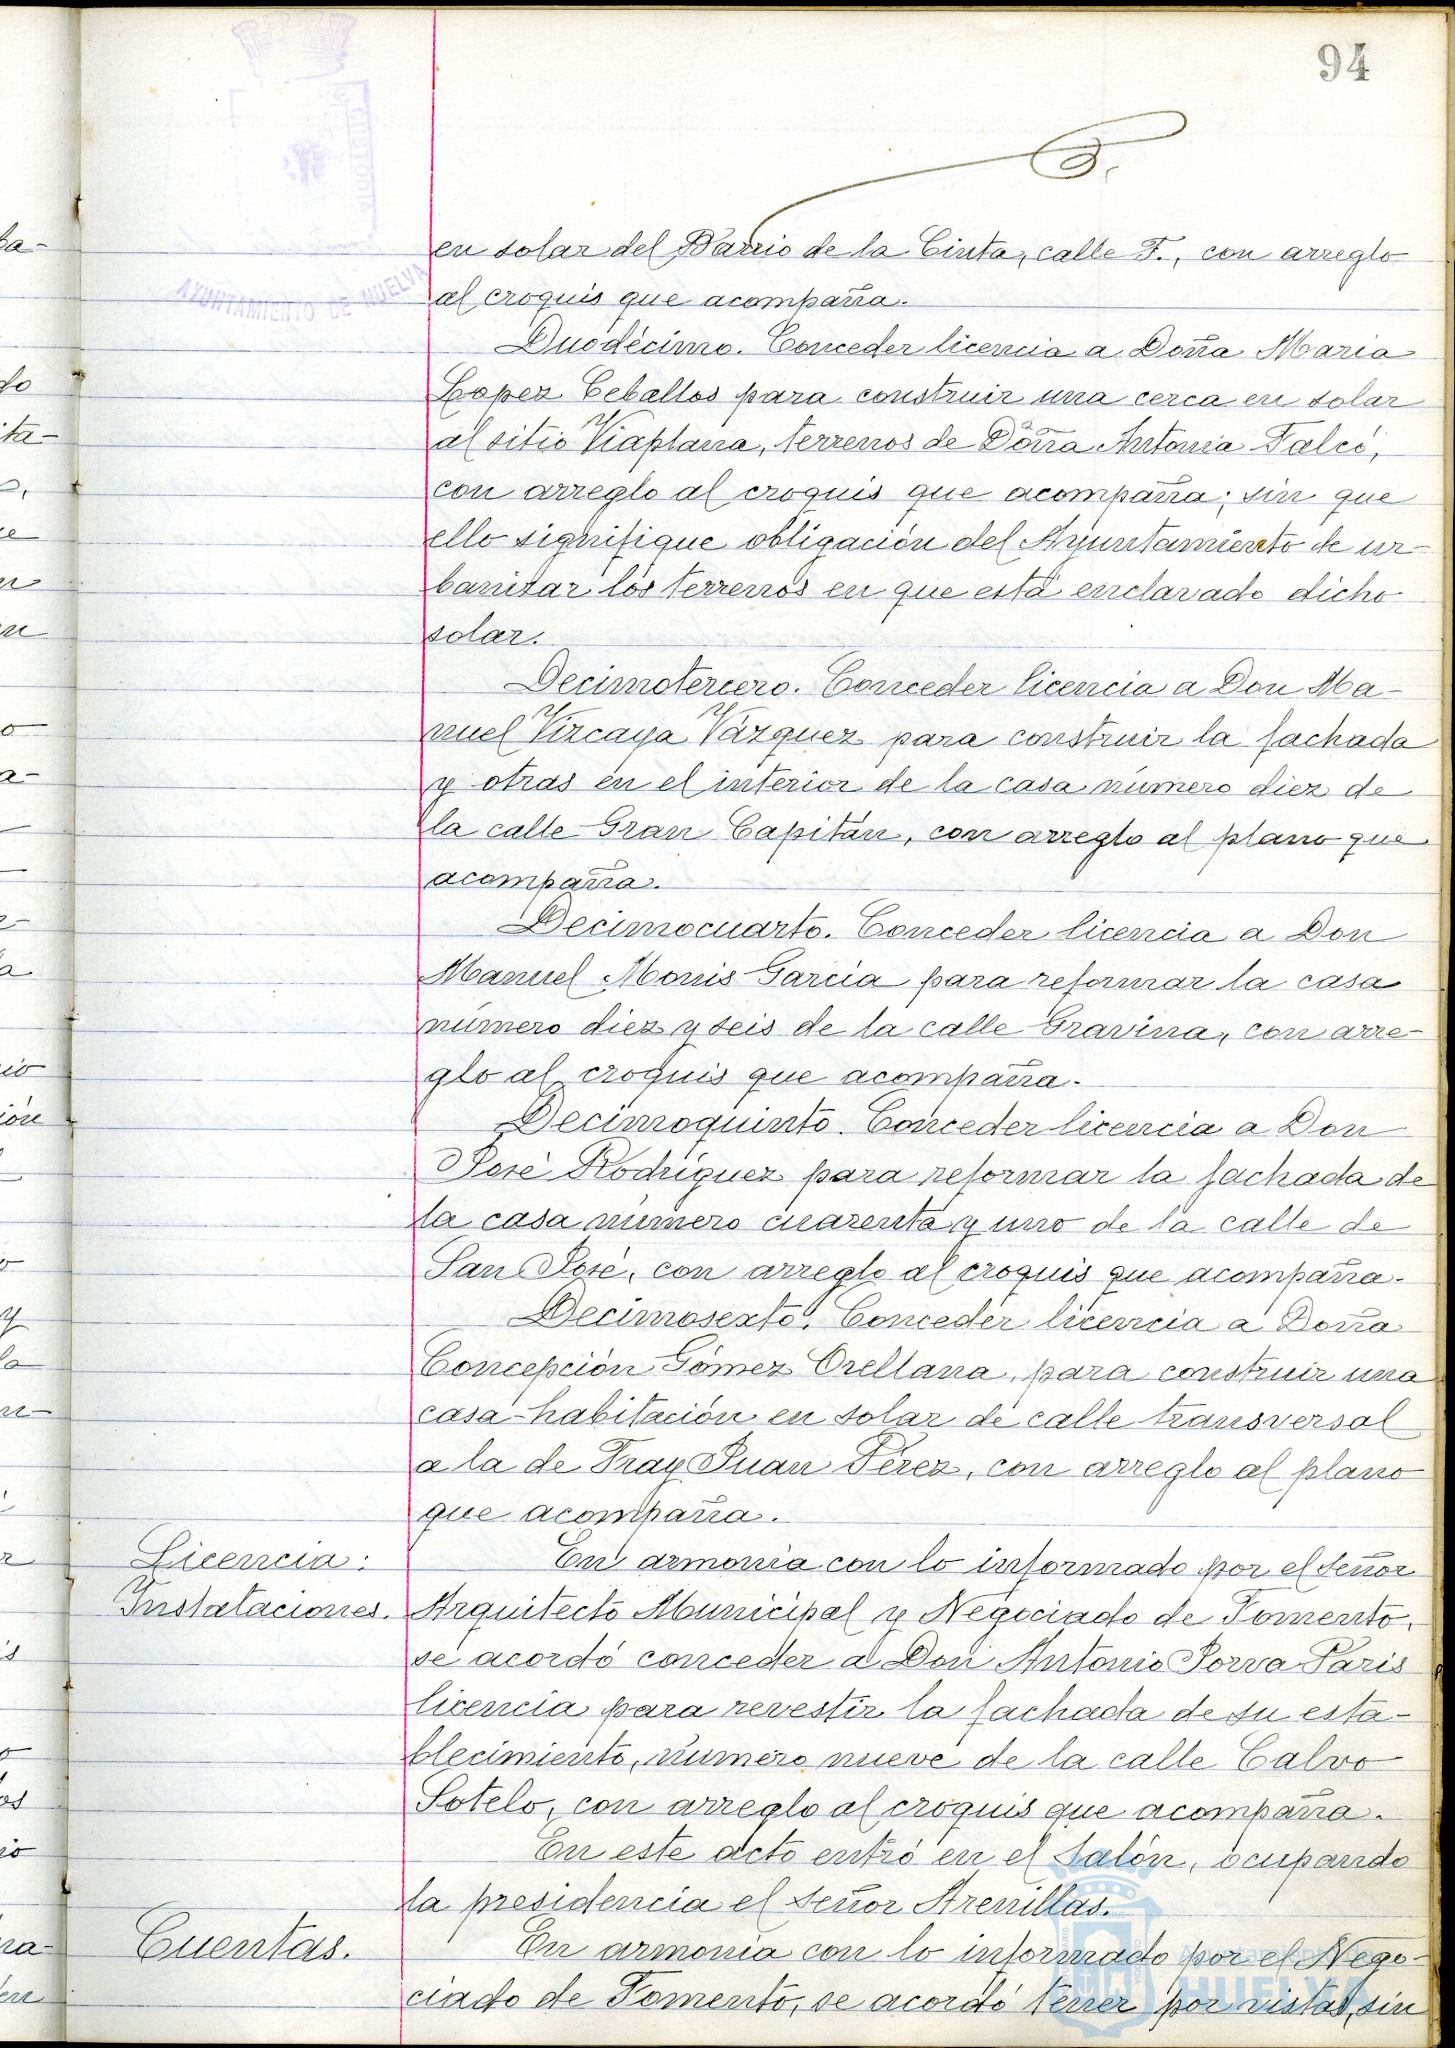 94
AYUNTAMIENTO DE HUELVA
en solar del Barrio de la Cinta, calle F., con arreglo
al croquis que acompaña.
Duodécimo. Conceder licencia a Doña Maria
Lopez Ceballos para construir una cerca en solar
al sitio Viaplana, terrenos de Doña Antonia Falcó,
con arreglo al croquis que acompaña; sin que
ello signifique obligación del Ayuntamiento de ur-
banizar los terrenos en que está enclavado dicho
solar.
Decimotercero. Conceder licencia a Don Ma-
nuel Vizcaya Vázquez para construir la fachada
y otras en el interior de la casa número diez de
la calle Gran Capitán, con arreglo al plano que
acompaña.
Decimocuarto. Conceder licencia a Don
Manuel Monis Garcia para reformar la casa
número diez y seis de la calle Gravina, con arre-
glo al croquis que acompaña.
Decimoquinto. Conceder licencia a Don
José Rodríguez para reformar la fachada de
la casa número cuarenta y uno de la calle de
San José, con arreglo al croquis que acompaña.
Decimosexto. Conceder licencia a Doña
Concepción Gómez Orellana, para construir una
casa-habitación en solar de calle transversal
a la de Fray Juan Pérez, con arreglo al plano
que acompaña.
Licencia:
Instalaciones.
En armonia con lo informado por el señor
Arquitecto Municipal y Negociado de Fomento,
se acordó conceder a Don Antonio Porva Paris
licencia para revestir la fachada de su esta-
blecimiento, número nueve de la calle Calvo
Sotelo, con arreglo al croquis que acompaña.
En este acto entró en el salón, ocupando
la presidencia el señor Arenillas.
Cuentas.
En armonia con lo informado por el Nego-
ciado de Fomento, se acordó tener por vistas, sin
Ayuntamiento de
HUELVA